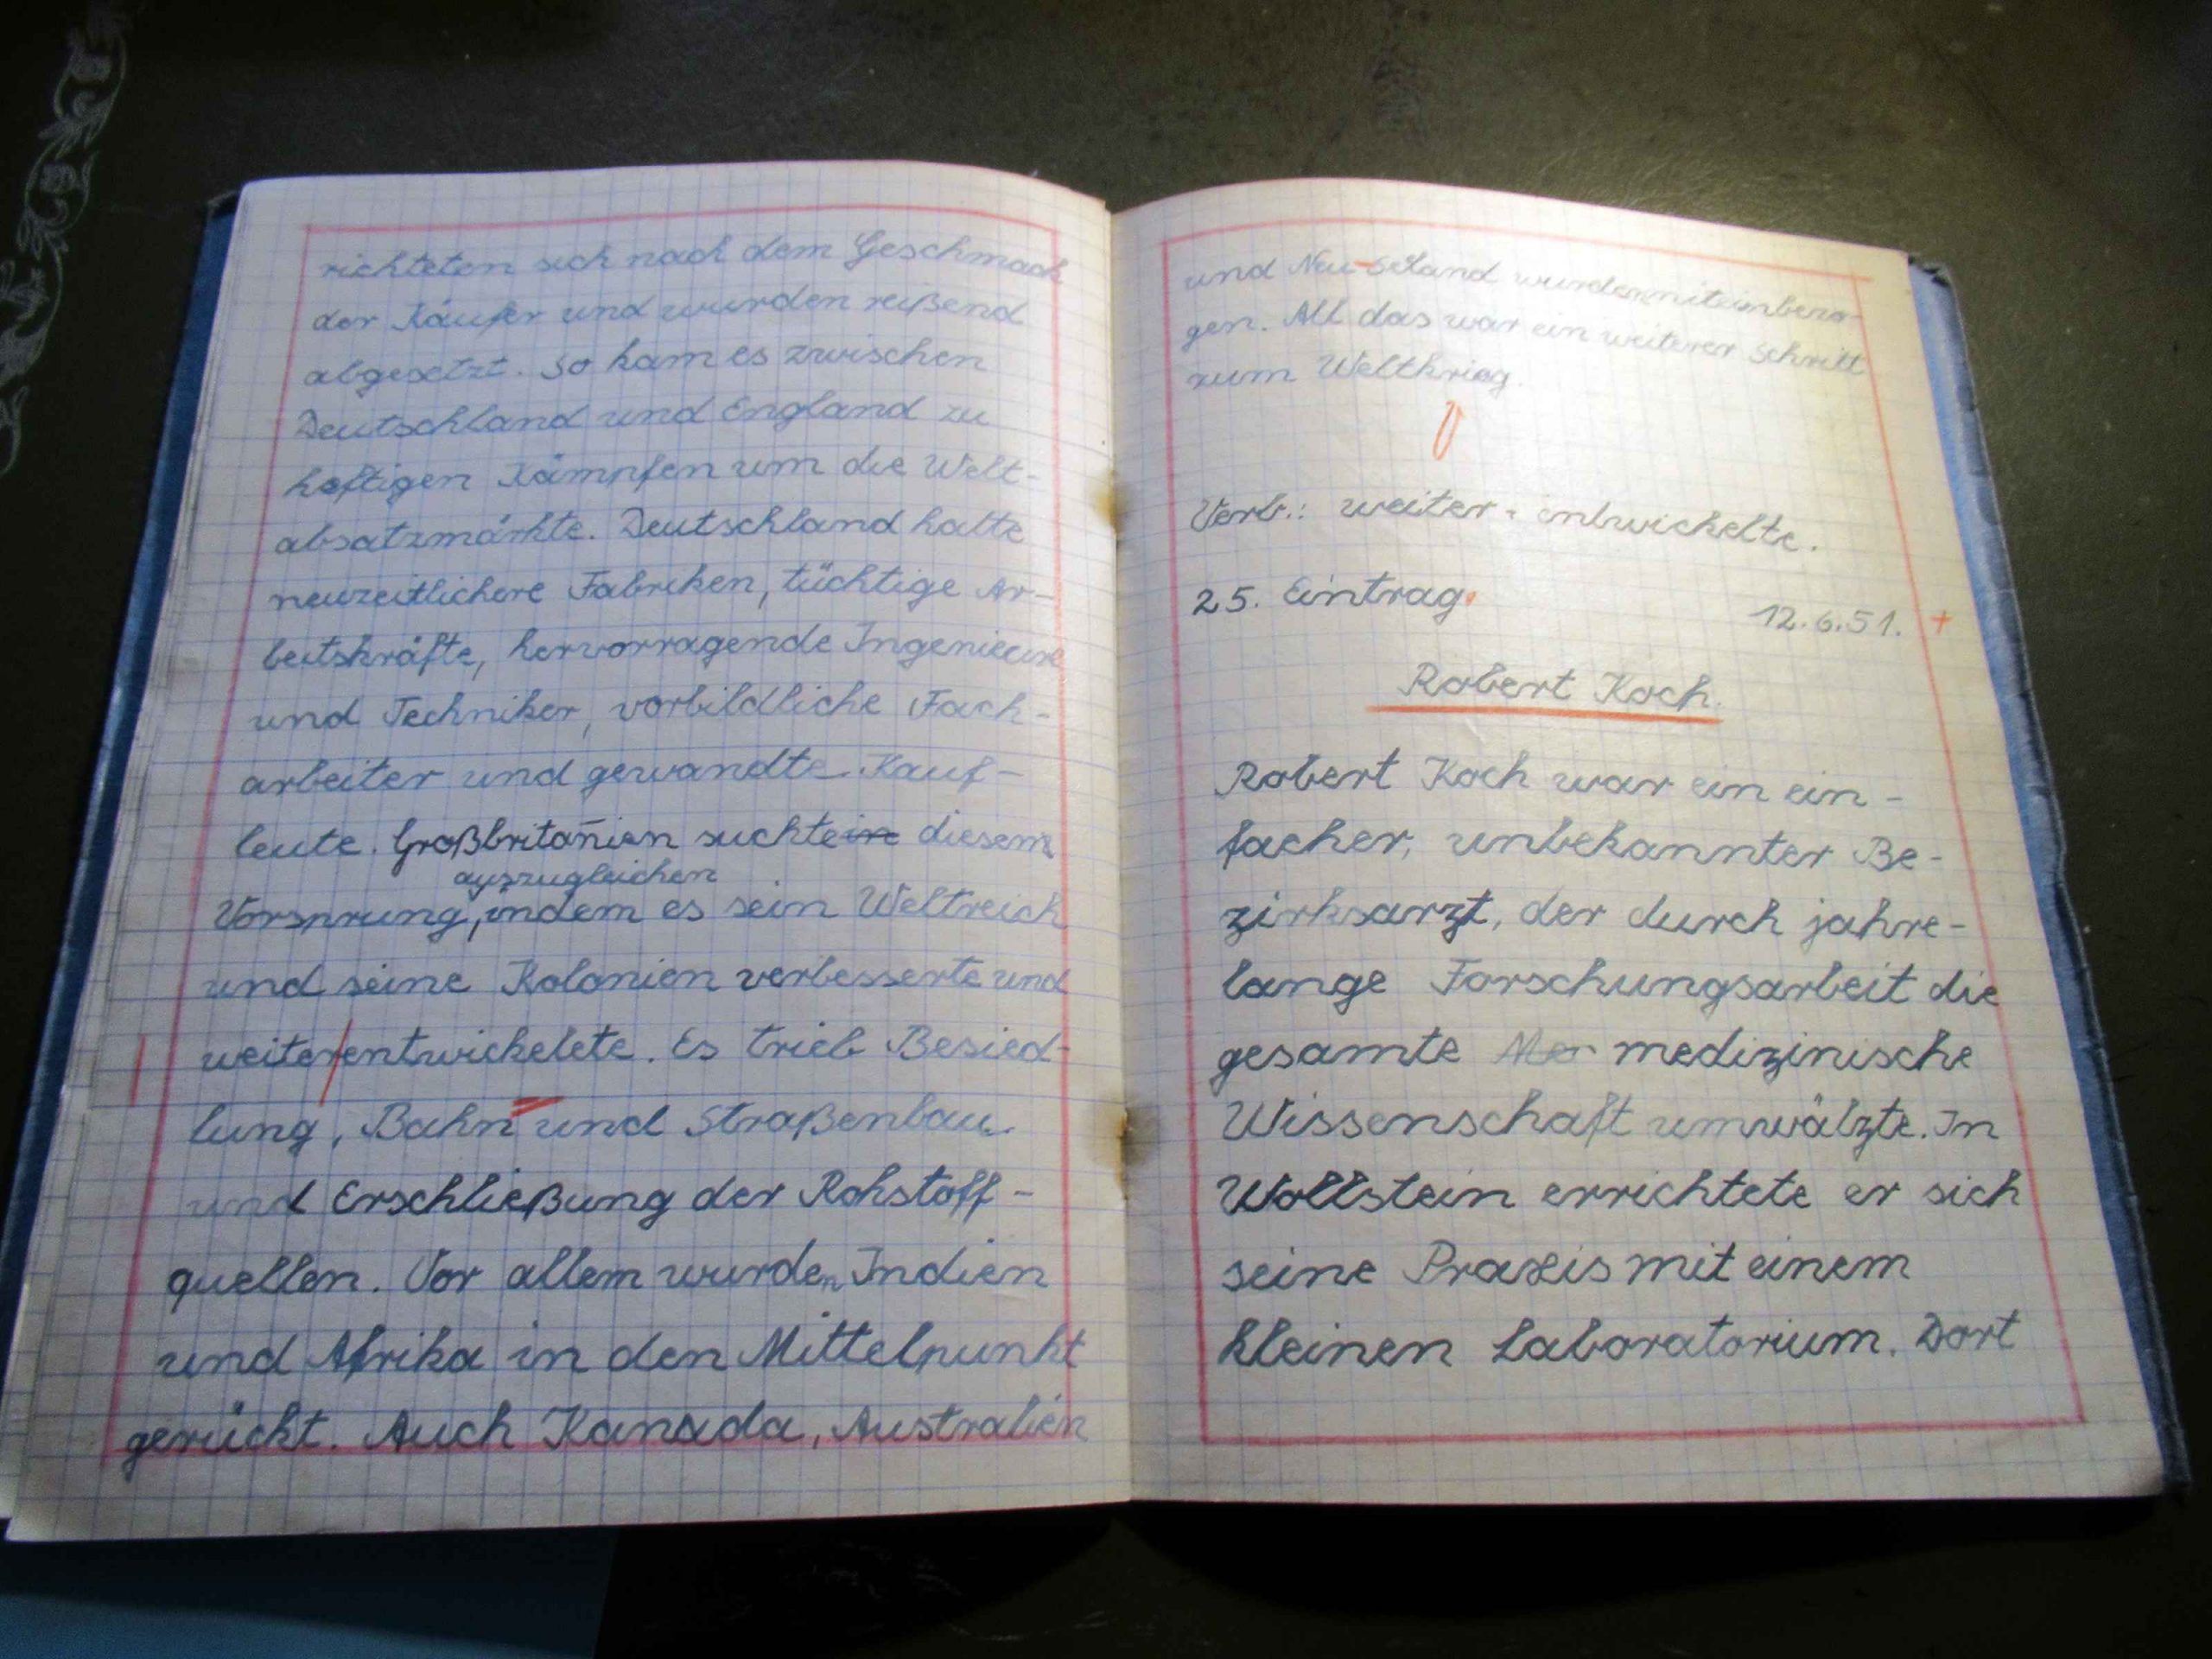 richteten sich nach dem Geschmack
der Käufer und wurden reißend
abgesetzt. So kam es zwischen
Deutschland und England zu
heftigen Kämpfen um die Welt-
absatzmärkte. Deutschland hatte
neuzeitlichere Fabriken, tüchtige Ar-
beitskräfte, hervorragende Ingenieure
und Techniker, vorbildliche Fach-
arbeiter und gewandte Kauf-
leute. Großbritan̄ien suchte diesem
auszugleichen
Vorsprung, indem es sein Weltreich
und seine Kolonien verbesserte und
weiterentwickelete. Es trieb Besied-
lung, Bahn und Straßenbau
und Erschließung der Rohstoff-
quellen. Vor allem wurden Indien
und Afrika in den Mittelpunkt
gerückt. Auch Kanada, Australien
und Neu-Seeland wurden miteinbezo-
gen. All das war ein weiterer Schritt
zum Weltkrieg.
Verb.: weiter - entwickelte.
25. Eintrag.
12.6.51. +
Robert Koch.
Robert Koch war ein ein-
facher, unbekannter Be-
zirksarzt, der durch jahre-
lange Forschungsarbeit die
gesamte medizinische
Wissenschaft umwälzte. In
Wollstein errichtete er sich
seine Praxis mit einem
kleinen Laboratorium. Dort